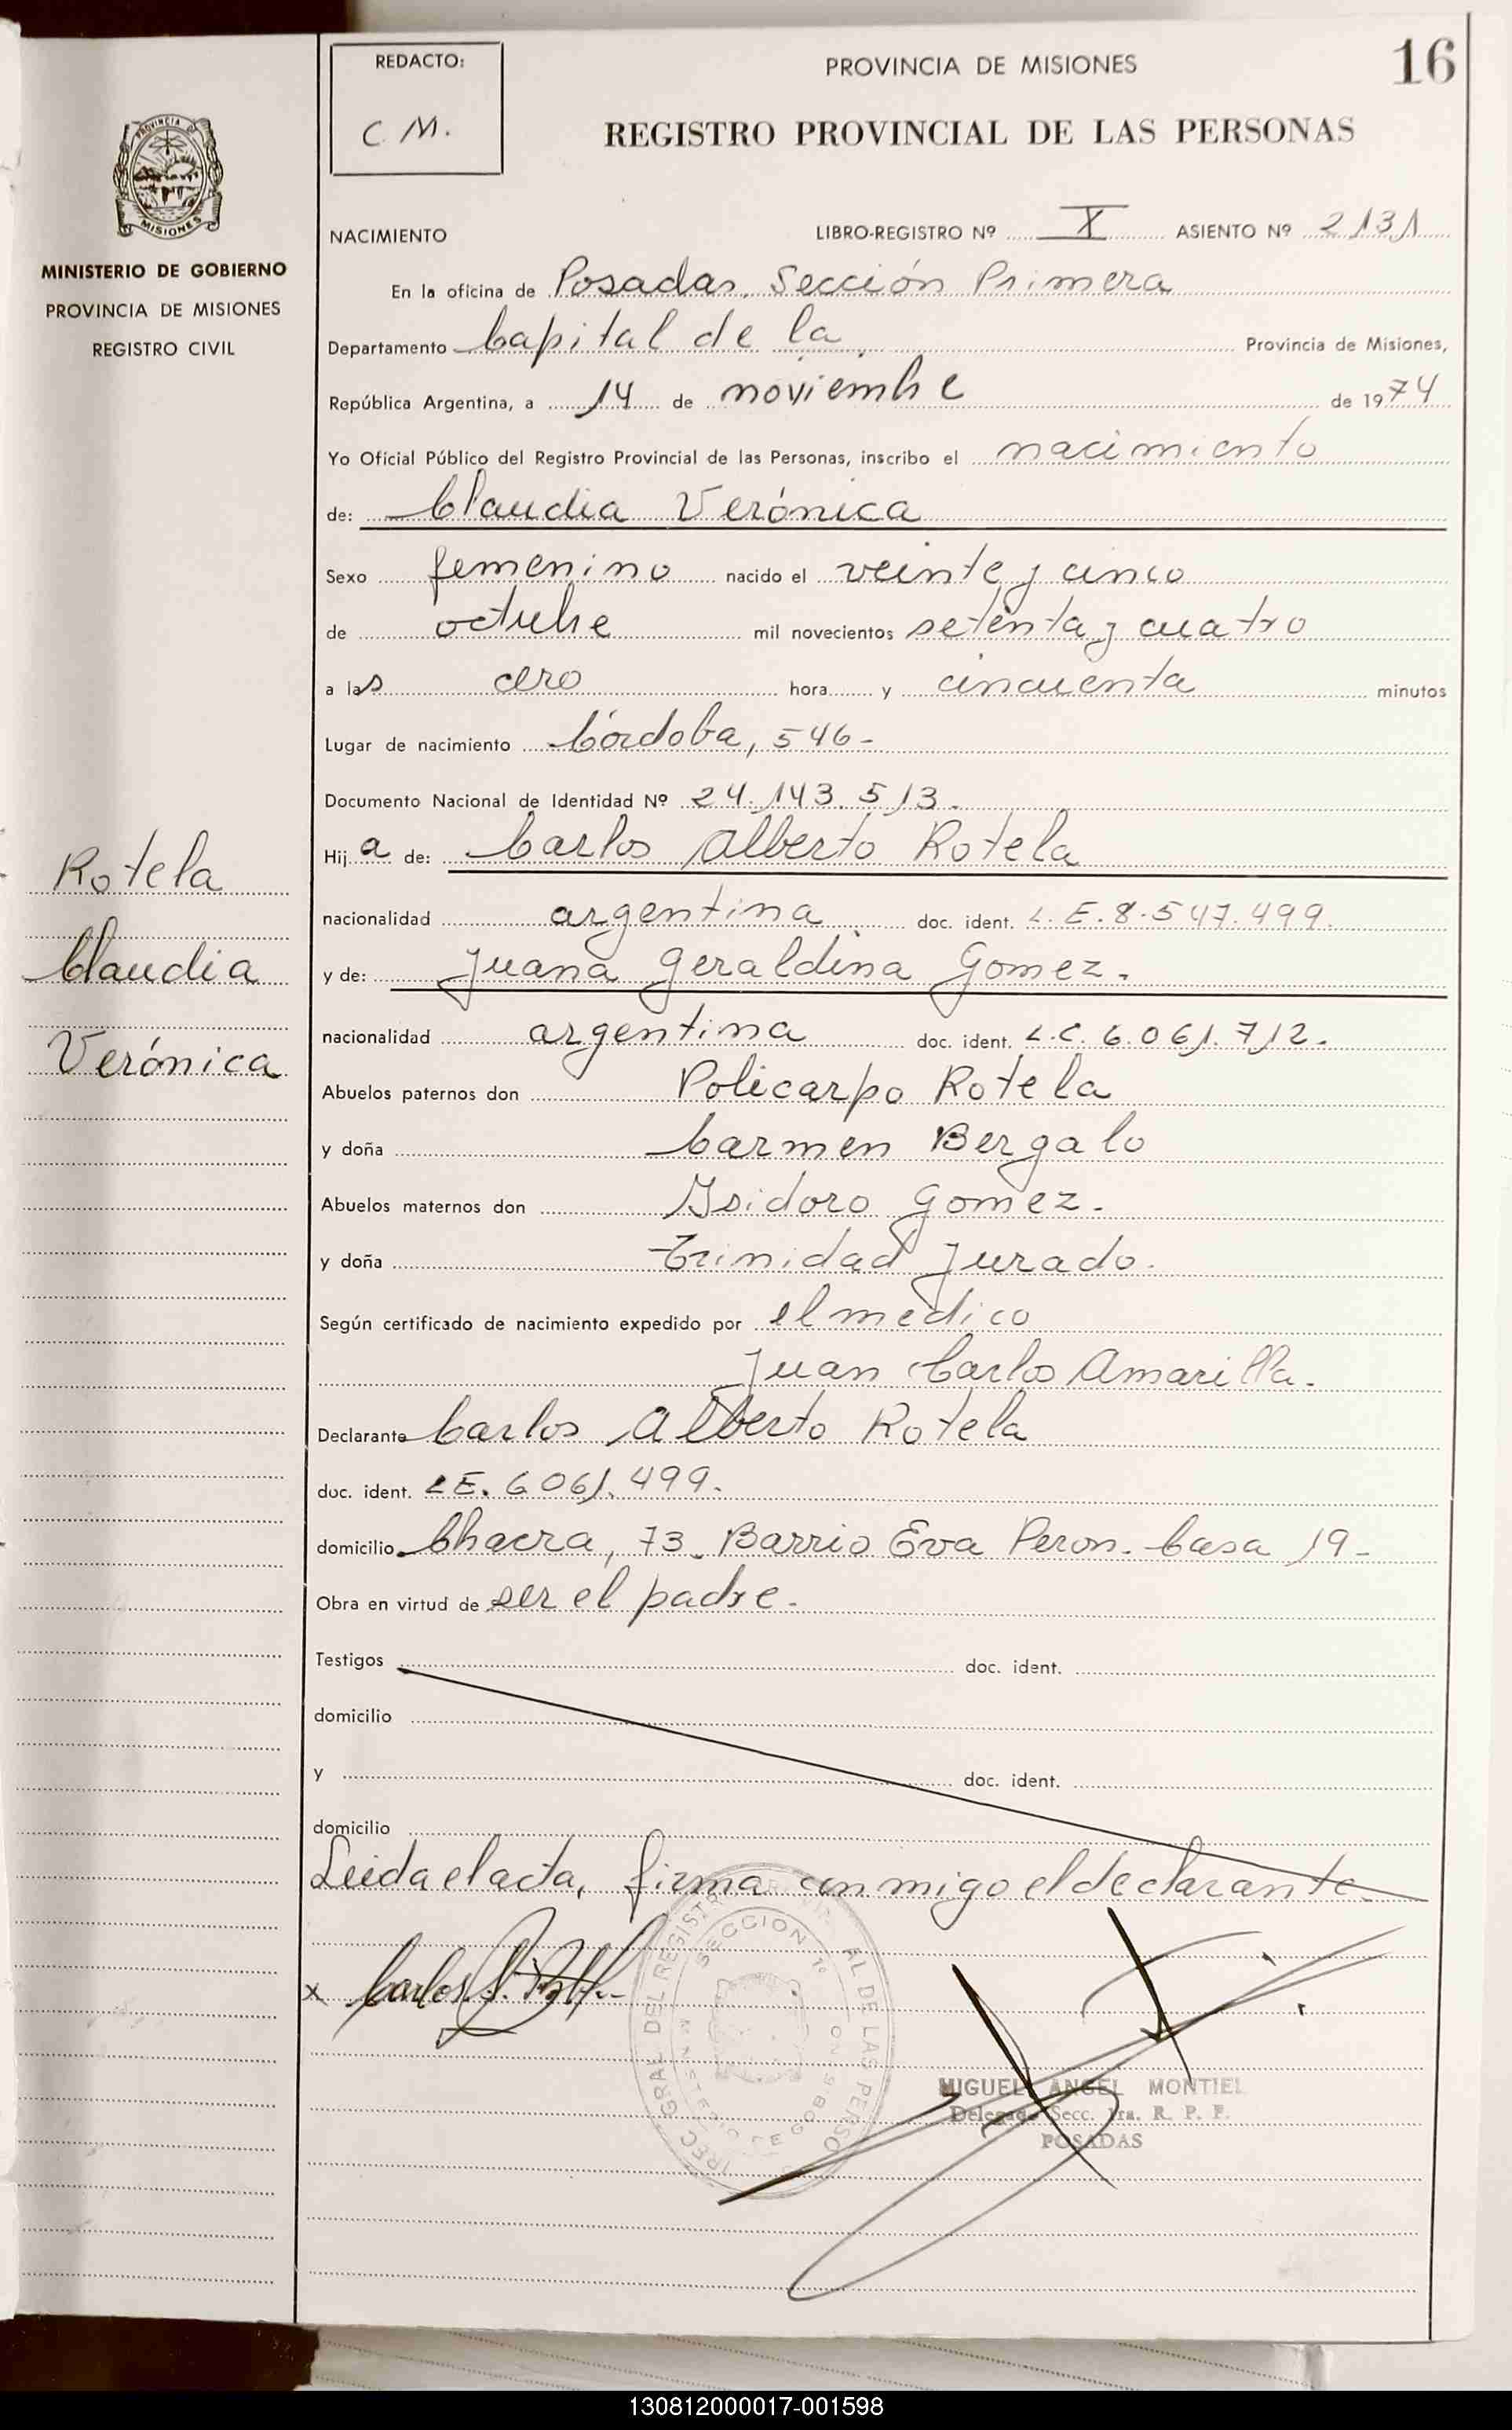 REDACTO:
C. M.
PROVINCIA DE MISIONES
16
REGISTRO PROVINCIAL DE LAS PERSONAS
PROVINCIA DE
MISIONES
MINISTERIO DE GOBIERNO
PROVINCIA DE MISIONES
REGISTRO CIVIL
NACIMIENTO LIBRO-REGISTRO Nº X ASIENTO Nº 2131
En la oficina de Posadas, Sección Primera
Departamento Capital de la Provincia de Misiones,
República Argentina, a 14 de noviembre de 1974
Yo Oficial Público del Registro Provincial de las Personas, inscribo el nacimiento
de: Claudia Verónica
Sexo femenino nacido el veinte y cinco
de octubre mil novecientos setenta y cuatro
a las cero hora y cincuenta minutos
Lugar de nacimiento Córdoba, 546-
Documento Nacional de Identidad Nº 24.143.513.
Hija de: Carlos Alberto Rotela
nacionalidad argentina doc. ident. L.E.8.547.499.
y de: Juana Geraldina Gomez.
nacionalidad argentina doc. ident. L.C. 6.061.712.
Abuelos paternos don Policarpo Rotela
y doña Carmen Bergalo
Abuelos maternos don Isidoro Gomez.
y doña Trinidad Jurado.
Según certificado de nacimiento expedido por el medico
Juan Carlos Amarilla.
Declarante Carlos Alberto Rotela
doc. ident. LE. 6.061.499.
domicilio Chacra, 73. Barrio Eva Peron. Casa 19-
Obra en virtud de ser el padre.
Testigos doc. ident.
domicilio
y doc. ident.
domicilio
Leida el acta, firma conmigo el declarante.
Rotela
Claudia
Verónica
x Carlos A.
SECCION 1º
MIGUEL ANGEL MONTIEL
Delegado Secc. 1ra. R. P. P.
POSADAS
130812000017-001598